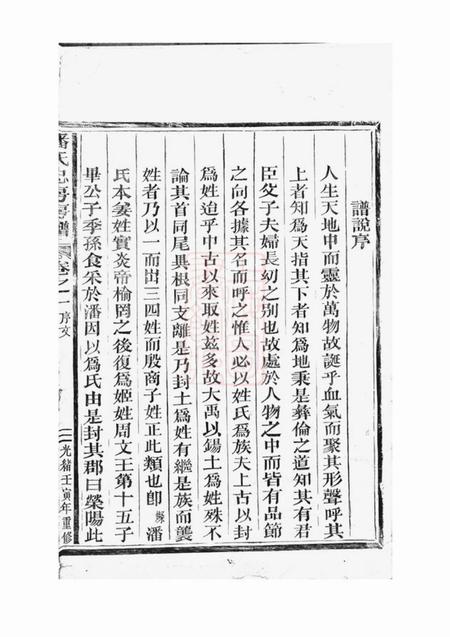 譜說序
人生天地中而靈於萬物故誕乎血氣而聚其形聲呼其
上者知為天指其下者知為地秉是彝倫之道知其有君
臣父子夫婦長幼之別也故處於人物之中而皆有品節
之向各據其名而呼之惟人必以姓氏為族夫上古以封
為姓迨乎中古以來取姓茲多故大禹以錫土為姓殊不
論其首同尾異根同支離是乃封土為姓有繼是族而襲
姓者乃以一而出三四姓而殷商子姓正此類也即 潘
氏本姜姓實炎帝榆罔之後復為姬姓周文王第十五子
畢公子季孫食采於潘因以為氏由是封其郡曰滎陽此
潘氏忠房房譜 卷之一 序文 光緒壬寅年重修